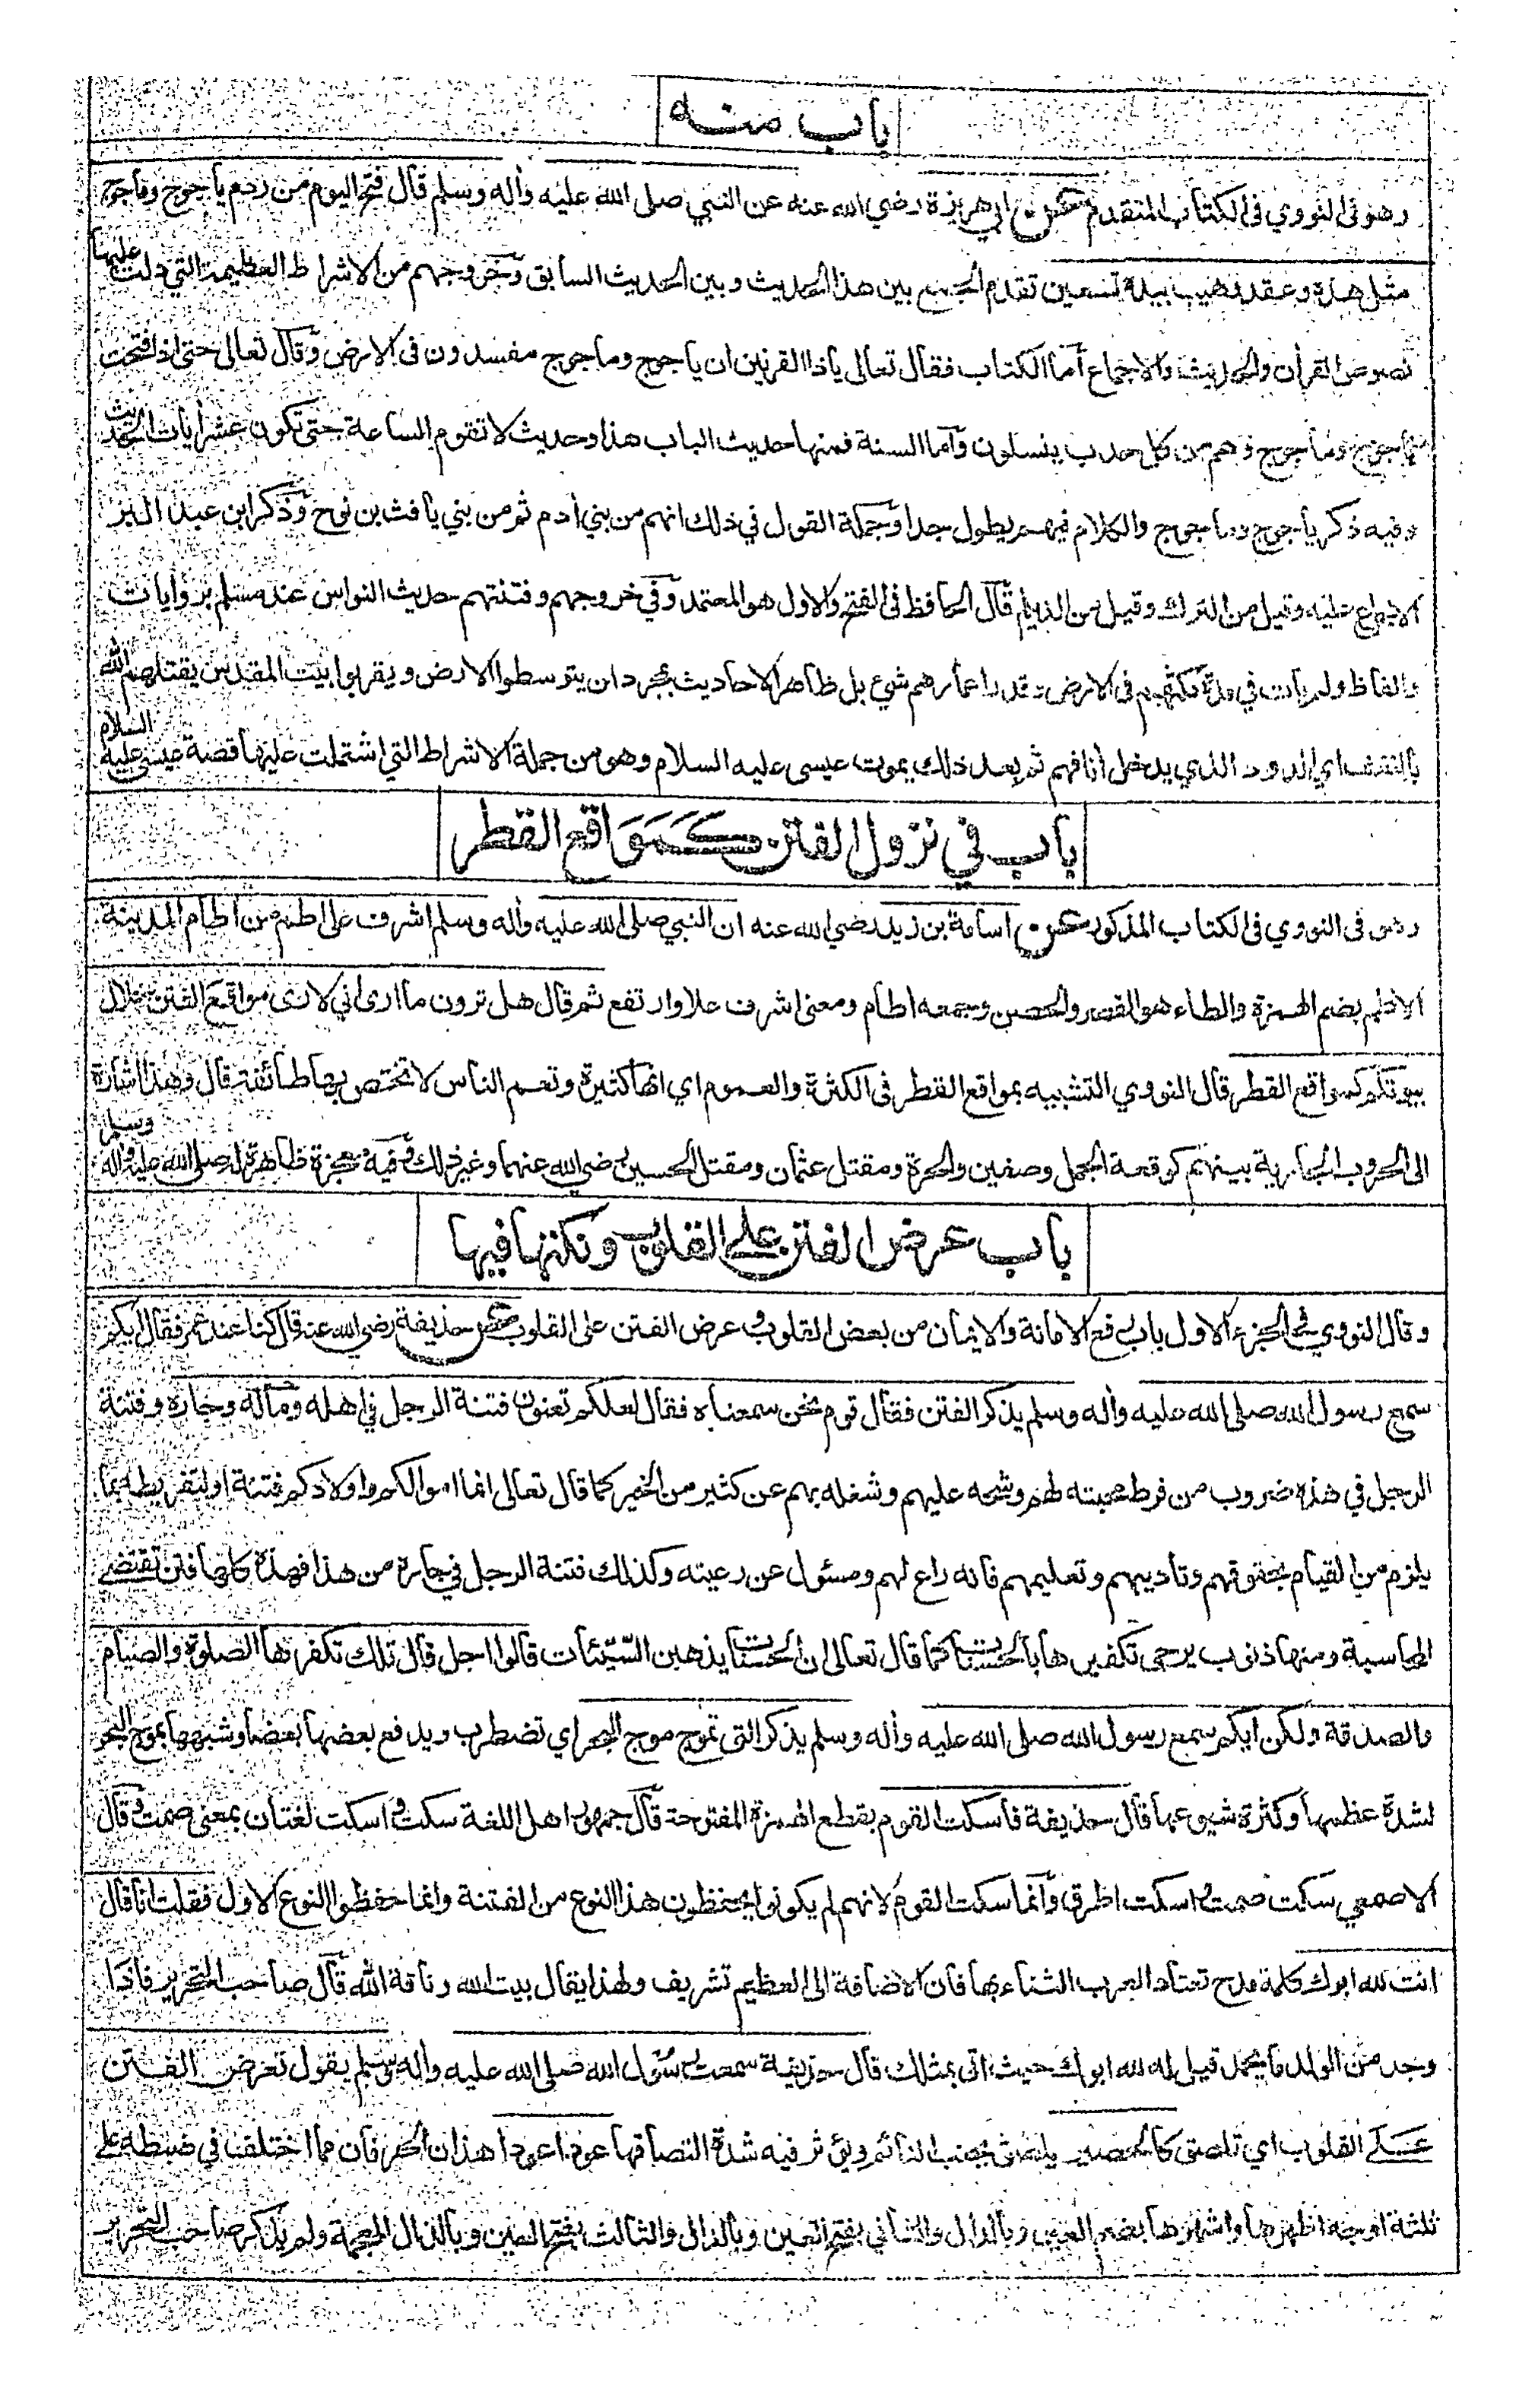 باب منه
وهو في النووي في الكتاب المتقدم عن ابي هريرة رضي الله عنه عن النبي صلى الله عليه وأله وسلم قال فتح اليوم من ردم يأجوج ومأجوج
مثل هذه وعقد وهيب بيده تسعين تقدم الجمع بين هذا الحديث وبين الحديث السابق وخروجهم من الاشراط العظيمة التي دلت عليها
نصوص القرأن والحديث والاجماع أما الكتاب فقال تعالى ياذا القرنين ان يأجوج ومأجوج مفسدون في الارض وقال تعالى حتى اذا فتحت
يأجوج ومأجوج وهم من كل حدب ينسلون وأما السنة فمنها حديث الباب هذا وحديث لا تقوم الساعة حتى تكون عشر أيات الحديث
وفيه ذكر يأجوج ومأجوج والكلام فيهم يطول جدا وجملة القول في ذلك انهم من بني أدم ثم من بني يافث بن نوح وذكر ابن عبد البر
الاجماع عليه وقيل من الترك وقيل من الديلم قال الحافظ في الفتح والاول هو المعتمد وفي خروجهم وفتنتهم حديث النواس عند مسلم بروايات
والفاظ ولم يأت في مدة مكثهم في الارض وقدر اعمارهم شيء بل ظاهر الاحاديث بمجرد ان يتوسطوا الارض ويقربوا بيت المقدس يقتلهم الله
بالنغف اي الدود الذي يدخل أنافهم ثم بعد ذلك بموت عيسى عليه السلام وهو من جملة الاشراط التي اشتملت عليها قصة عيسى عليه السلام
باب في نزول الفتن كمواقع القطر
وهو في النووي في الكتاب المذكور عن اسامة بن زيد رضي الله عنه ان النبي صلى الله عليه وأله وسلم اشرف على اطم من اطام المدينة
الاطم بضم الهمزة والطاء هو القصر والحصن وجمعه اطام ومعنى اشرف علا وارتفع ثم قال هل ترون ما ارى اني لارى مواقع الفتن خلال
بيوتكم كمواقع القطر قال النووي التشبيه بمواقع القطر في الكثرة والعموم اي انها كثيرة وتعم الناس لا تختص بها طائفة قال وهذا اشارة
الى الحروب الجارية بينهم كوقعة الجمل وصفين والحرة ومقتل عثمان ومقتل الحسين رضي الله عنهما وغير ذلك وفيه معجزة ظاهرة له صلى الله عليه وأله وسلم
باب عرض الفتن على القلوب ونكتها فيها
وقال النووي في الجزء الاول باب رفع الامانة والايمان من بعض القلوب وعرض الفتن على القلوب عن حذيفة رضي الله عنه قال كنا عند عمر فقال ايكم
سمع رسول الله صلى الله عليه وأله وسلم يذكر الفتن فقال قوم نحن سمعناه فقال لعلكم تعنون فتنة الرجل في اهله وماله وجاره وفتنة
الرجل في هذه ضروب من فرط محبته لهم وشحه عليهم وشغله بهم عن كثير من الخير كما قال تعالى انما اموالكم واولادكم فتنة او لتفريطه بما
يلزم من القيام بحقوقهم وتاديبهم وتعليمهم فانه راع لهم ومسئول عن رعيته وكذلك فتنة الرجل في جاره من هذا فهذه كلها فتن تقتضي
المحاسبة ومنها ذنوب يرجى تكفيرها بالحسنات كما قال تعالى ان الحسنات يذهبن السيئات قالوا اجل قال تلك تكفرها الصلوة والصيام
والصدقة ولكن ايكم سمع رسول الله صلى الله عليه وأله وسلم يذكر التي تموج موج البحر اي تضطرب ويدفع بعضها بعضا وشبهها بموج البحر
لشدة عظمها وكثرة شيوعها قال حذيفة فأسكت القوم بقطع الهمزة المفتوحة قال جمهور اهل اللغة سكت واسكت لغتان بمعنى صمت وقال
الاصمعي سكت صمت واسكت اطرق وانما سكت القوم لانهم لم يكونوا يحفظون هذا النوع من الفتنة وانما حفظوا النوع الاول فقلت انا قال
انت لله ابوك كلمة مدح تعتاد العرب الثناء بها فان الاضافة الى العظيم تشريف ولهذا يقال بيت الله وناقة الله قال صاحب التحرير فاذا
وجد من الولد ما يحمد قيل له لله ابوك حيث اتى بمثلك قال حذيفة سمعت رسول الله صلى الله عليه وأله وسلم يقول تعرض الفتن
على القلوب اي تلصق كالحصير يلصق بجنب النائم ويؤثر فيه شدة التصاقها عودا عودا هذان الحرفان مما اختلف في ضبطه على
ثلثة اوجه اظهرها واشهرها بضم العين وبالدال والثاني بفتح العين وبالدال والثالث بفتح العين وبالذال المعجمة ولم يذكر صاحب التحرير